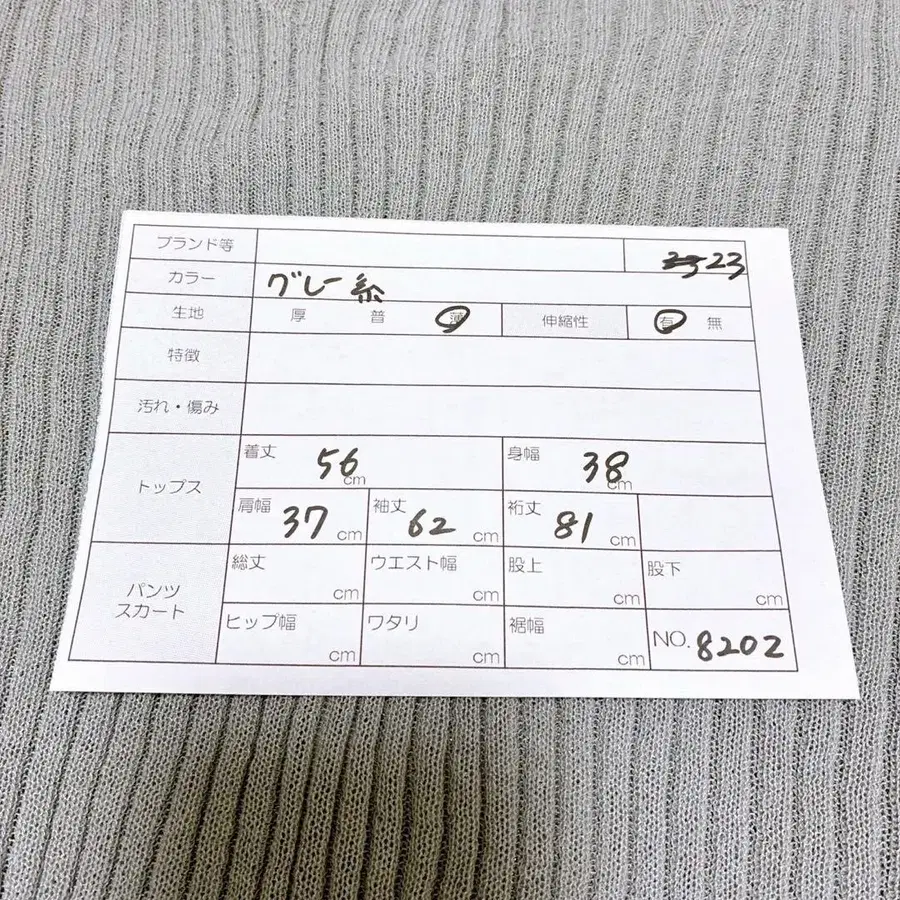 ブランド等 23
カラー グレー系
生地 厚 普 薄 伸縮性 有 無
特徴
汚れ・傷み
トップス
着丈 56 cm 身幅 38 cm
肩幅 37 cm 袖丈 62 cm 裄丈 81 cm
パンツ
スカート
総丈 cm ウエスト幅 cm 股上 cm 股下 cm
ヒップ幅 cm ワタリ cm 裾幅 cm NO. 8202